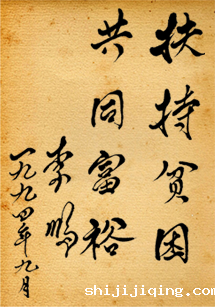 扶持贫困
共同富裕
李鹏
一九九四年九月
shijijiqing.com